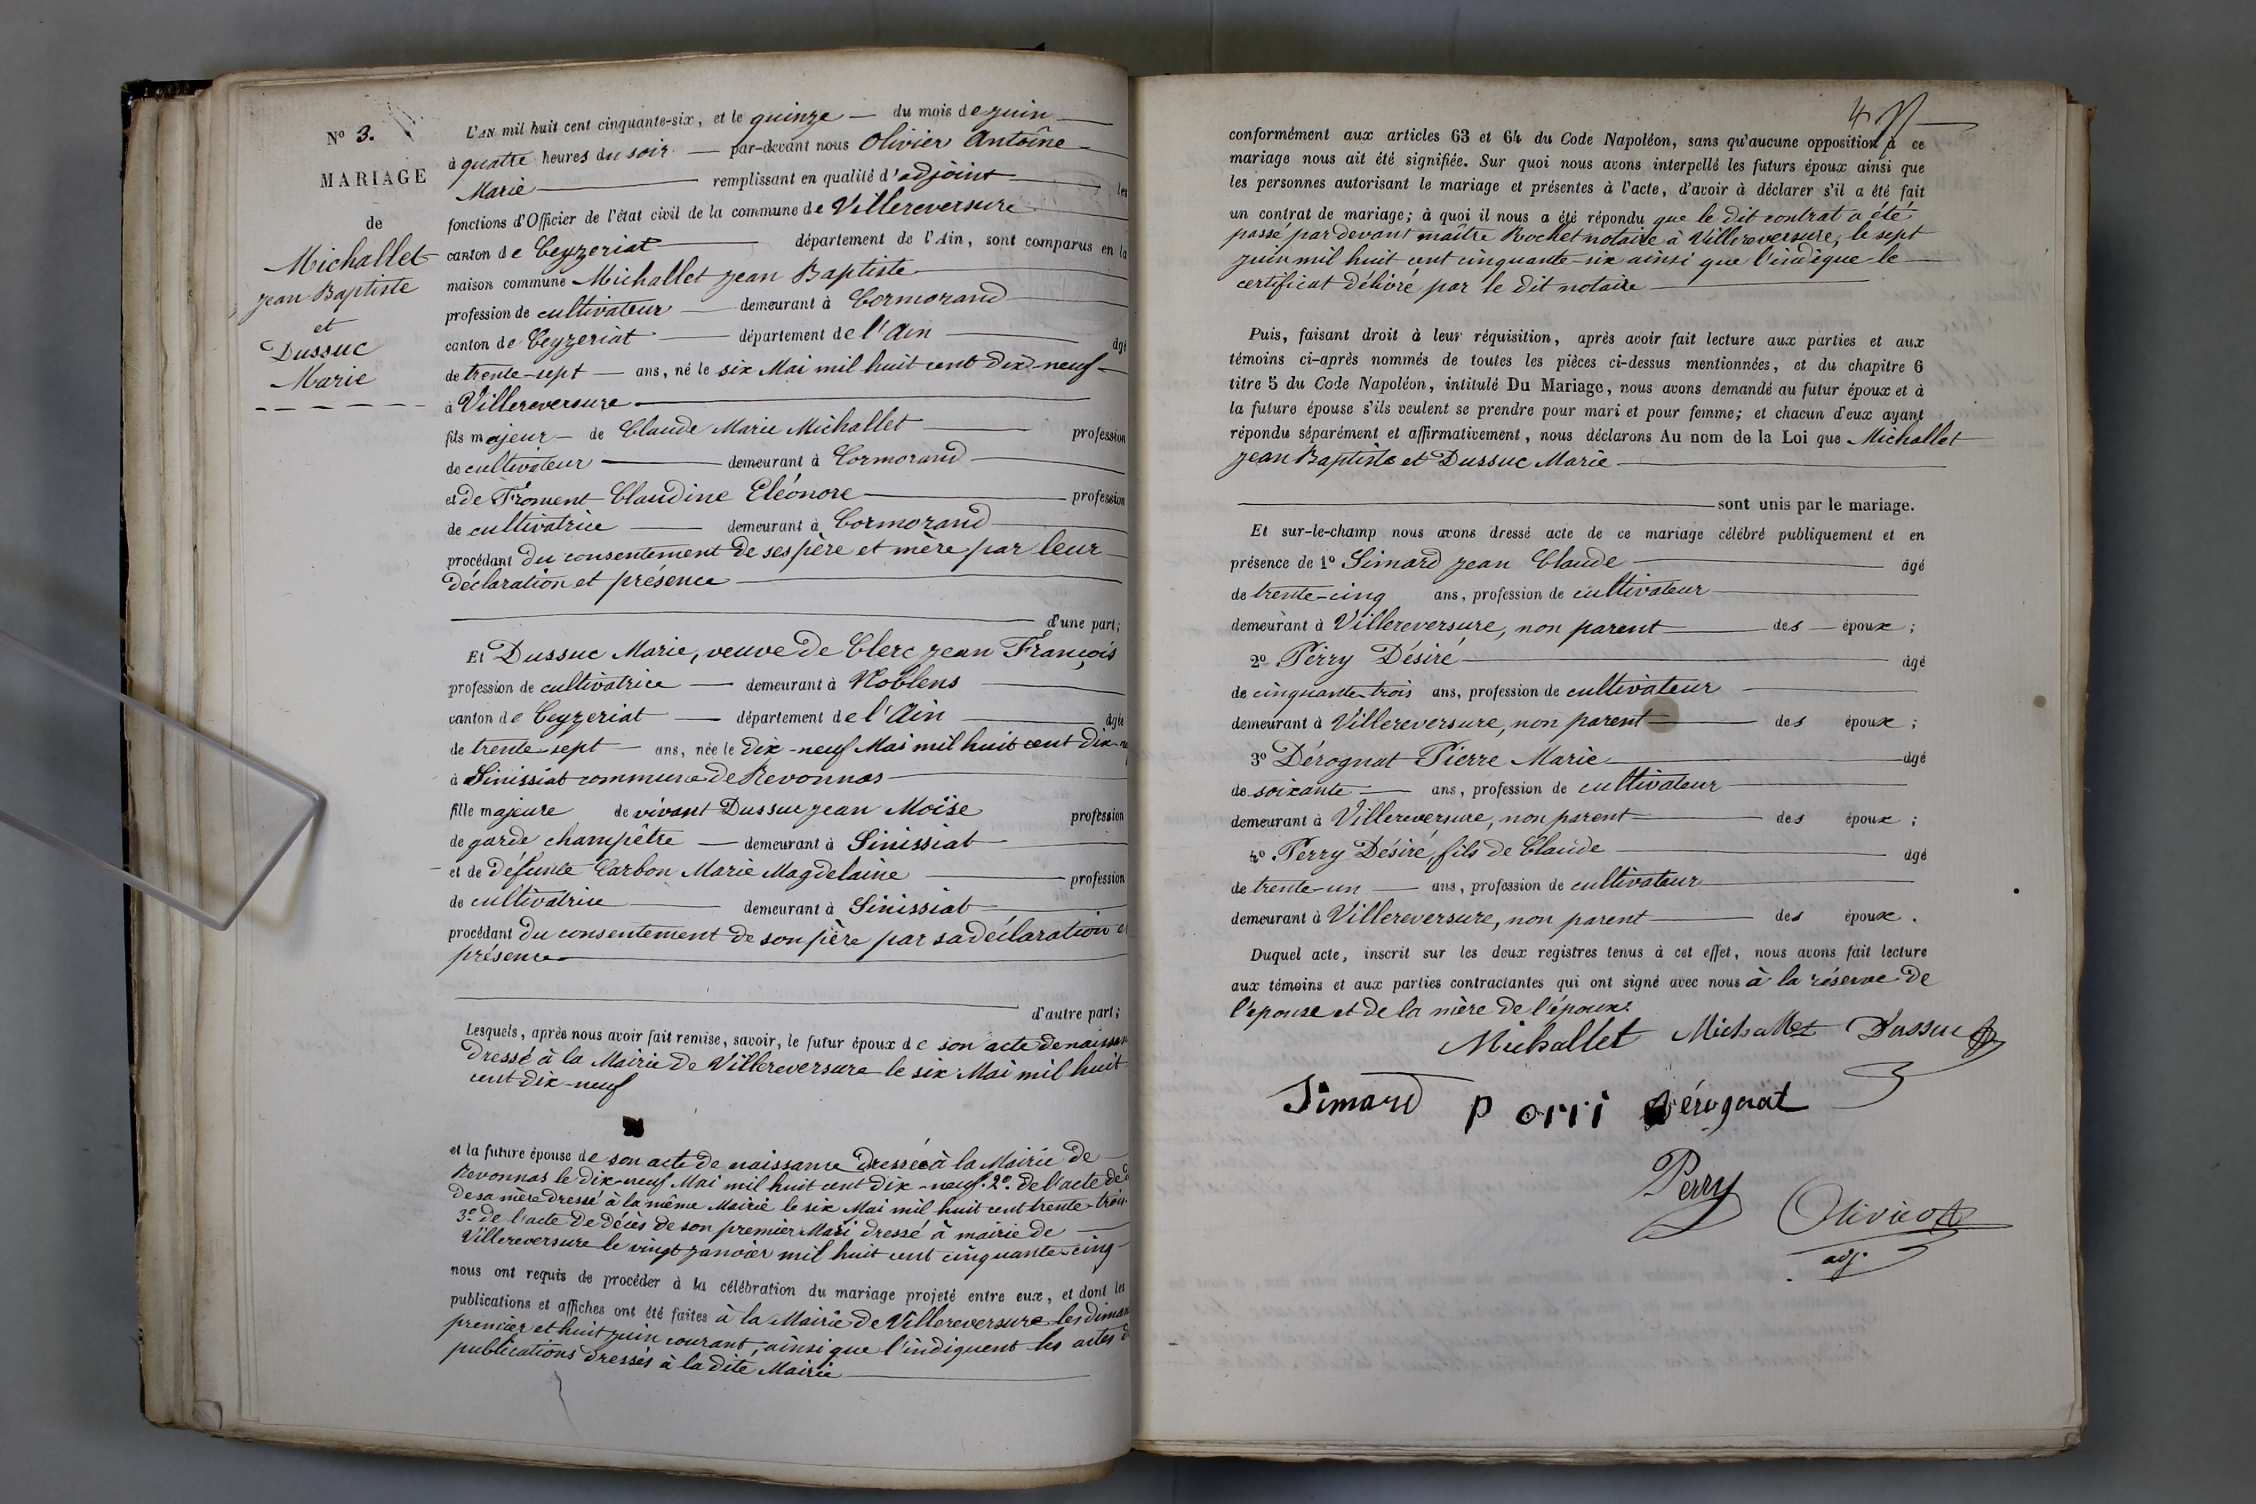 N° 3.
MARIAGE
de
Michallet
Jean Baptiste
et
Dussuc
Marie
L'AN mil huit cent cinquante-six, et le quinze du mois de juin
à quatre heures du soir par-devant nous Olivier Antoine
Marie remplissant en qualité d'adjoint les
fonctions d'Officier de l'état civil de la commune de Villereversure
canton de Ceyzeriat département de l'Ain, sont comparus en la
maison commune Michallet Jean Baptiste
profession de cultivateur demeurant à Cormorand
canton de Ceyzeriat département de l'Ain âgé
de trente-sept ans, né le six Mai mil huit cent dix-neuf
à Villereversure
fils majeur de Claude Marie Michallet profession
de cultivateur demeurant à Cormorand
et de Froment Claudine Eléonore profession
de cultivatrice demeurant à Cormorand
procédant du consentement de ses père et mère par leur
déclaration et présence
d'une part;
Et Dussuc Marie, veuve de Clerc Jean François
profession de cultivatrice demeurant à Noblens
canton de Ceyzeriat département de l'Ain âgée
de trente-sept ans, née le dix-neuf Mai mil huit cent dix-n
à Sinissiat commune de Revonnas
fille majeure de vivant Dussuc Jean Moïse profession
de garde champêtre demeurant à Sinissiat
et de défunte Carbon Marie Magdelaine profession
de cultivatrice demeurant à Sinissiat
procédant du consentement de son père par sa déclaration et
présence
d'autre part;
Lesquels, après nous avoir fait remise, savoir, le futur époux de son acte de naissan
dressé à la Mairie de Villereversure le six Mai mil huit
cent dix-neuf
et la future épouse de son acte de naissance dressée à la Mairie de
Revonnas le dix-neuf Mai mil huit cent dix-neuf. 2° de l'acte de d
de sa mère dressé à la même Mairie le six Mai mil huit cent trente-trois.
3° de l'acte de décès de son premier Mari dressé à mairie de
Villereversure le vingt janvier mil huit cent cinquante-cinq
nous ont requis de procéder à la célébration du mariage projeté entre eux, et dont les
publications et affiches ont été faites à la Mairie de Villereversure les diman
premier et huit juin courant, ainsi que l'indiquent les actes d
publications dressés à la dite Mairie
4
conformément aux articles 63 et 64 du Code Napoléon, sans qu'aucune opposition à ce
mariage nous ait été signifiée. Sur quoi nous avons interpellé les futurs époux ainsi que
les personnes autorisant le mariage et présentes à l'acte, d'avoir à déclarer s'il a été fait
un contrat de mariage; à quoi il nous a été répondu que le dit contrat a été
passé par devant maître Rochet notaire à Villereversure, le sept
juin mil huit cent cinquante-six ainsi que l'indique le
certificat délivré par le dit notaire
Puis, faisant droit à leur réquisition, après avoir fait lecture aux parties et aux
témoins ci-après nommés de toutes les pièces ci-dessus mentionnées, et du chapitre 6
titre 5 du Code Napoléon, intitulé Du Mariage, nous avons demandé au futur époux et à
la future épouse s'ils veulent se prendre pour mari et pour femme; et chacun d'eux ayant
répondu séparément et affirmativement, nous déclarons Au nom de la Loi que Michallet
Jean Baptiste et Dussuc Marie
sont unis par le mariage.
Et sur-le-champ nous avons dressé acte de ce mariage célébré publiquement et en
présence de 1° Simard Jean Claude âgé
de trente-cinq ans, profession de cultivateur
demeurant à Villereversure, non parent des époux;
2° Perry Désiré âgé
de cinquante-trois ans, profession de cultivateur
demeurant à Villereversure, non parent des époux;
3° Dérognat Pierre Marie âgé
de soixante ans, profession de cultivateur
demeurant à Villereversure, non parent des époux;
4° Perry Désiré, fils de Claude âgé
de trente-un ans, profession de cultivateur
demeurant à Villereversure, non parent des époux.
Duquel acte, inscrit sur les deux registres tenus à cet effet, nous avons fait lecture
aux témoins et aux parties contractantes qui ont signé avec nous à la réserve de
l'épouse et de la mère de l'époux.
Michallet Michallet Dussuc
Simard P orri Dérognat
Perry
Olivier
adj.